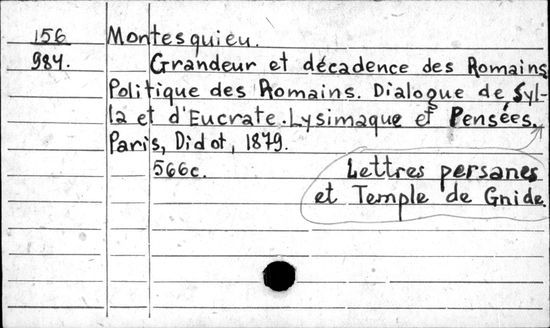 156 Montesquieu.
984. Grandeur et décadence des Romains
Politique des Romains. Dialogue de Syl-
la et d'Eucrate. Lysimaque et Pensées.
Paris, Didot, 1879.
566c. Lettres persanes
et Temple de Gnide.